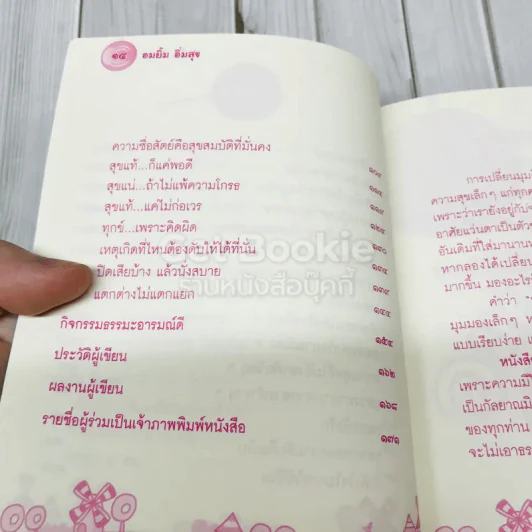 ๑๔ อมยิ้ม อิ่มสุข
ความซื่อสัตย์คือสุขสมบัติที่มั่นคง
สุขแท้...ก็แค่พอดี
สุขแน่...ถ้าไม่แพ้ความโกรธ
สุขแท้...แค่ไม่ก่อเวร
ทุกข์...เพราะคิดผิด
เหตุเกิดที่ไหนต้องดับให้ได้ที่นั่น ๑๓๐
ปิดเสียบ้าง แล้วนั่งสบาย ๑๓๔
แตกต่างไม่แตกแยก ๑๓๙
กิจกรรมธรรมะอารมณ์ดี ๑๔๔
ประวัติผู้เขียน ๑๕๔
ผลงานผู้เขียน ๑๖๒
รายชื่อผู้ร่วมเป็นเจ้าภาพพิมพ์หนังสือ ๑๖๘
๑๗๑
Bookie
ร้านหนังสือบุ๊คกี้
การเปลี่ยนมุม
ความสุขเล็กๆ แก่ทุก
เพราะว่าเรายังอยู่กับ
อาศัยแว่นตาเป็นตัว
อันเดิมที่ใส่มานาน
หากลองได้เปลี่ยน
มากขึ้น มองอะไร
คำว่า
มุมมองเล็กๆ
แบบเรียบง่าย
หนังสือ
เพราะความมี
เป็นกัลยาณมิ
ของทุกท่าน
จะไม่เอาธร